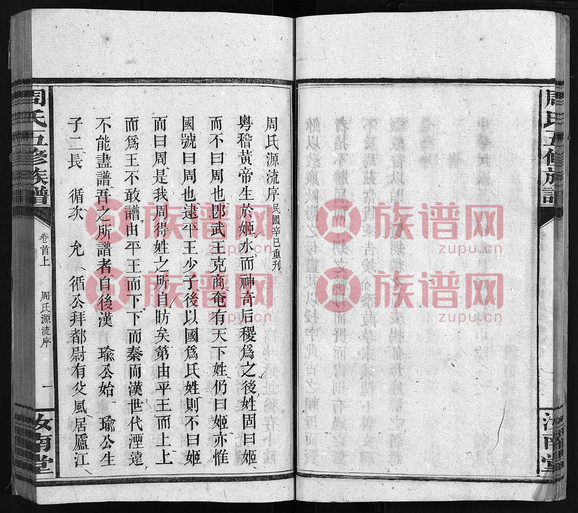 周氏五修族譜
汝南堂
周氏源流序民國辛巳重刊
粵稽黃帝生於姬水而神奇后稷爲之後姓固曰姬
而不曰周也卽武王克商奄有天下姓仍曰姬亦惟
國號曰周也遠平王少子後以國爲氏姓則不曰姬
而曰周是我周得姓之所自昉矣第由平王而上上
而爲王不敢譜由平王而下下而秦而漢世代湮遠
不能盡譜吾之所譜者自後漢 瑜公始 瑜公生
子二長 循次 允 循公拜都尉有父風居廬江
周氏五修族譜
卷首上
周氏源流序
一
汝南堂
族谱网
zupu.cn
族谱网
zupu.cn
族谱网
zupu.cn
族谱网
zupu.cn
族谱网
zupu.cn
族谱网
zupu.cn